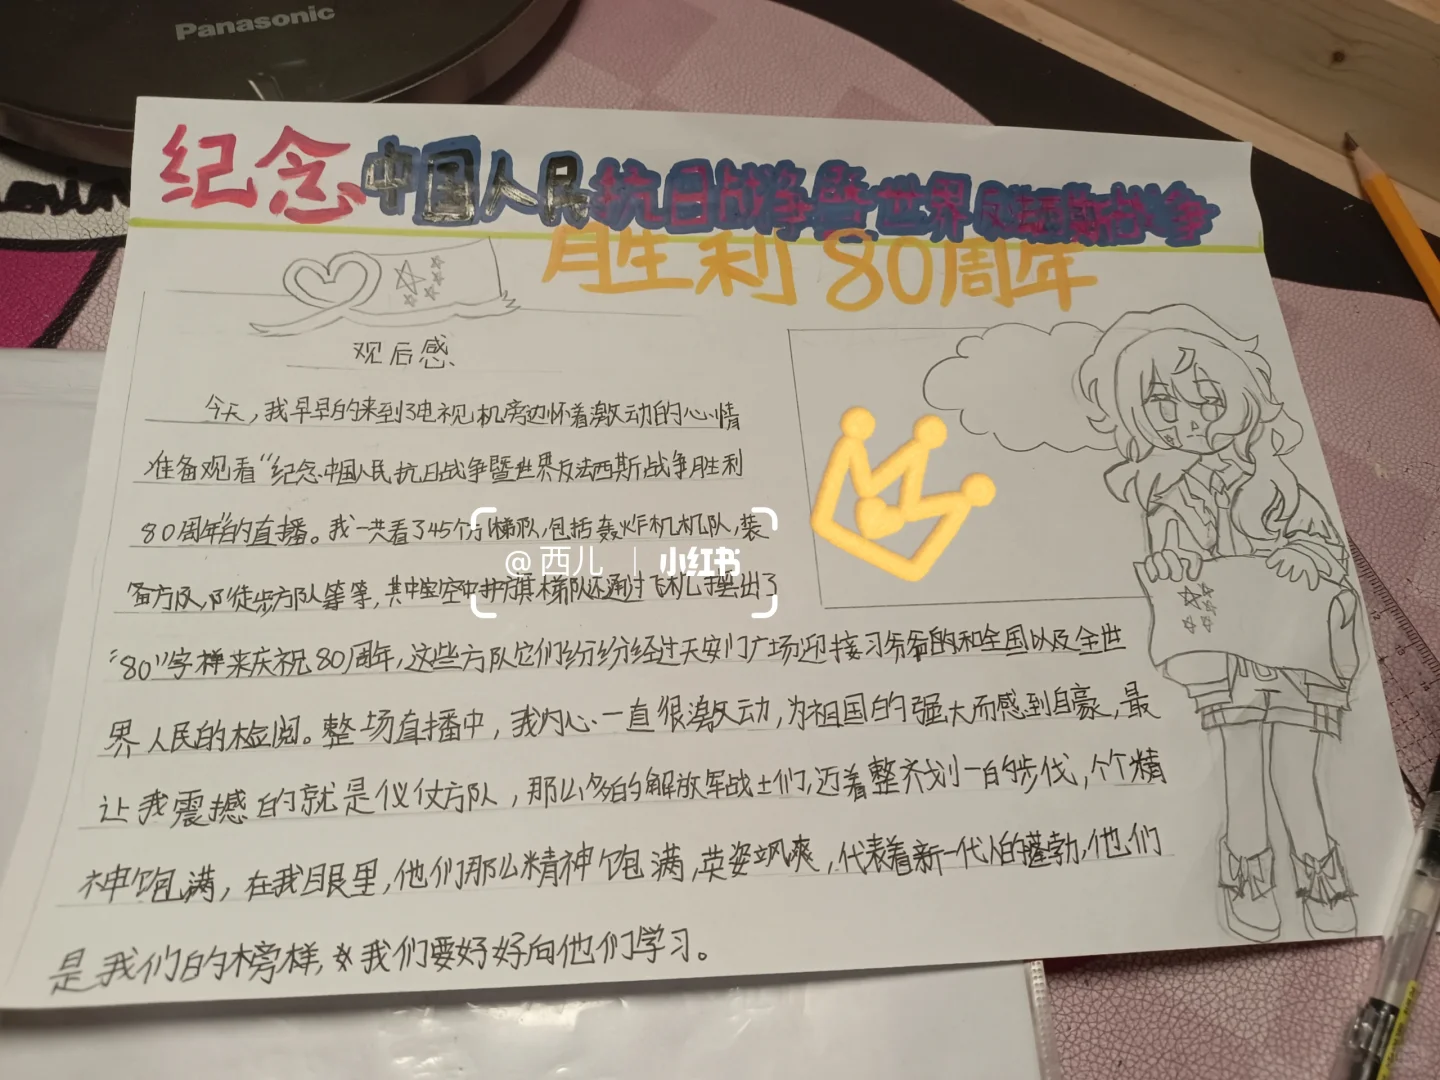 Panasonic
纪念中国人民抗日战争暨世界反法西斯战争
胜利80周年
观后感
今天,我早早的来到了电视机旁边怀着激动的心情
准备观看“纪念中国人民抗日战争暨世界反法西斯战争胜利
80周年”的直播。我一共看了45个方梯队,包括轰炸机机队,装
备方队,徒步方队等等,其中空中护旗梯队还通过飞机摆出了
“80”字样来庆祝80周年,这些方队它们纷纷经过天安门广场迎接习爷爷的和全国以及全世
界人民的检阅。整场直播中,我内心一直很激动,为祖国的强大而感到自豪,最
让我震撼的就是仪仗方队,那么多的解放军战士们,迈着整齐划一的步伐,个个精
神饱满,在我眼里,他们那么精神饱满,英姿飒爽,代表着新一代人的蓬勃,他们
是我们的榜样,我们要好好向他们学习。
@西儿 | 小红书